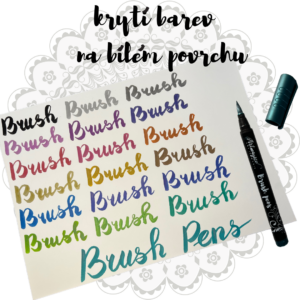 krytí barev
na bílém povrchu
Brush Brush Brush
Brush Brush Brush
Brush Brush Brush
Brush Brush Brush
Brush Brush Brush
Brush Brush Brush
Brush Pens
Brush pen